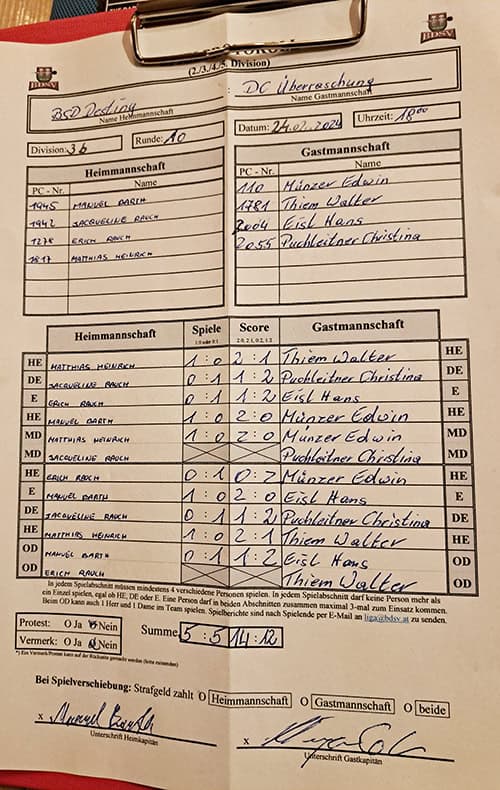 BDSV
BDSV
(2./3./4./5. Division)
BSD Desting
Name Heimmannschaft
: DC Überraschung
Name Gastmannschaft
Division: 3b
Runde: 10
Datum: 24.02.2024
Uhrzeit: 18⁰⁰
Heimmannschaft
PC - Nr. Name
1945 MANUEL BARTH
1942 JACQUELINE RAUCH
1278 ERICH RAUCH
1817 MATTHIAS HEINRICH
Gastmannschaft
PC - Nr. Name
110 Münzer Edwin
1781 Thiem Walter
2004 Eisl Hans
2055 Puchleitner Christina
Heimmannschaft Spiele 1:0 oder 0:1 Score 2:0, 2:1, 0:2, 1:2 Gastmannschaft
HE MATTHIAS HEINRICH 1 : 0 2 : 1 Thiem Walter HE
DE JACQUELINE RAUCH 0 : 1 1 : 2 Puchleitner Christina DE
E ERICH RAUCH 0 : 1 1 : 2 Eisl Hans E
HE MANUEL BARTH 1 : 0 2 : 0 Münzer Edwin HE
MD MATTHIAS HEINRICH 1 : 0 2 : 0 Münzer Edwin MD
MD JACQUELINE RAUCH Puchleitner Christina MD
HE ERICH RAUCH 0 : 1 0 : 2 Münzer Edwin HE
E MANUEL BARTH 1 : 0 2 : 0 Eisl Hans E
DE JACQUELINE RAUCH 0 : 1 1 : 2 Puchleitner Christina DE
HE MATTHIAS HEINRICH 1 : 0 2 : 1 Thiem Walter HE
OD MANUEL BARTH 0 : 1 1 : 2 Eisl Hans OD
OD ERICH RAUCH Thiem Walter OD
In jedem Spielabschnitt müssen mindestens 4 verschiedene Personen spielen. In jedem Spielabschnitt darf keine Person mehr als
ein Einzel spielen, egal ob HE, DE oder E. Eine Person darf in beiden Abschnitten zusammen maximal 3-mal zum Einsatz kommen.
Beim OD kann auch 1 Herr und 1 Dame im Team spielen. Spielberichte sind nach Spielende per E-Mail an liga@bdsv.at zu senden.
Protest: O Ja O Nein
Vermerk: O Ja O Nein
Summe 5 : 5 14 : 12
*) Ein Vermerk/Protest kann auf der Rückseite gemacht werden (bitte ankreuzen)
Bei Spielverschiebung: Strafgeld zahlt O Heimmannschaft O Gastmannschaft O beide
x
Unterschrift Heimkapitän
x
Unterschrift Gastkapitän